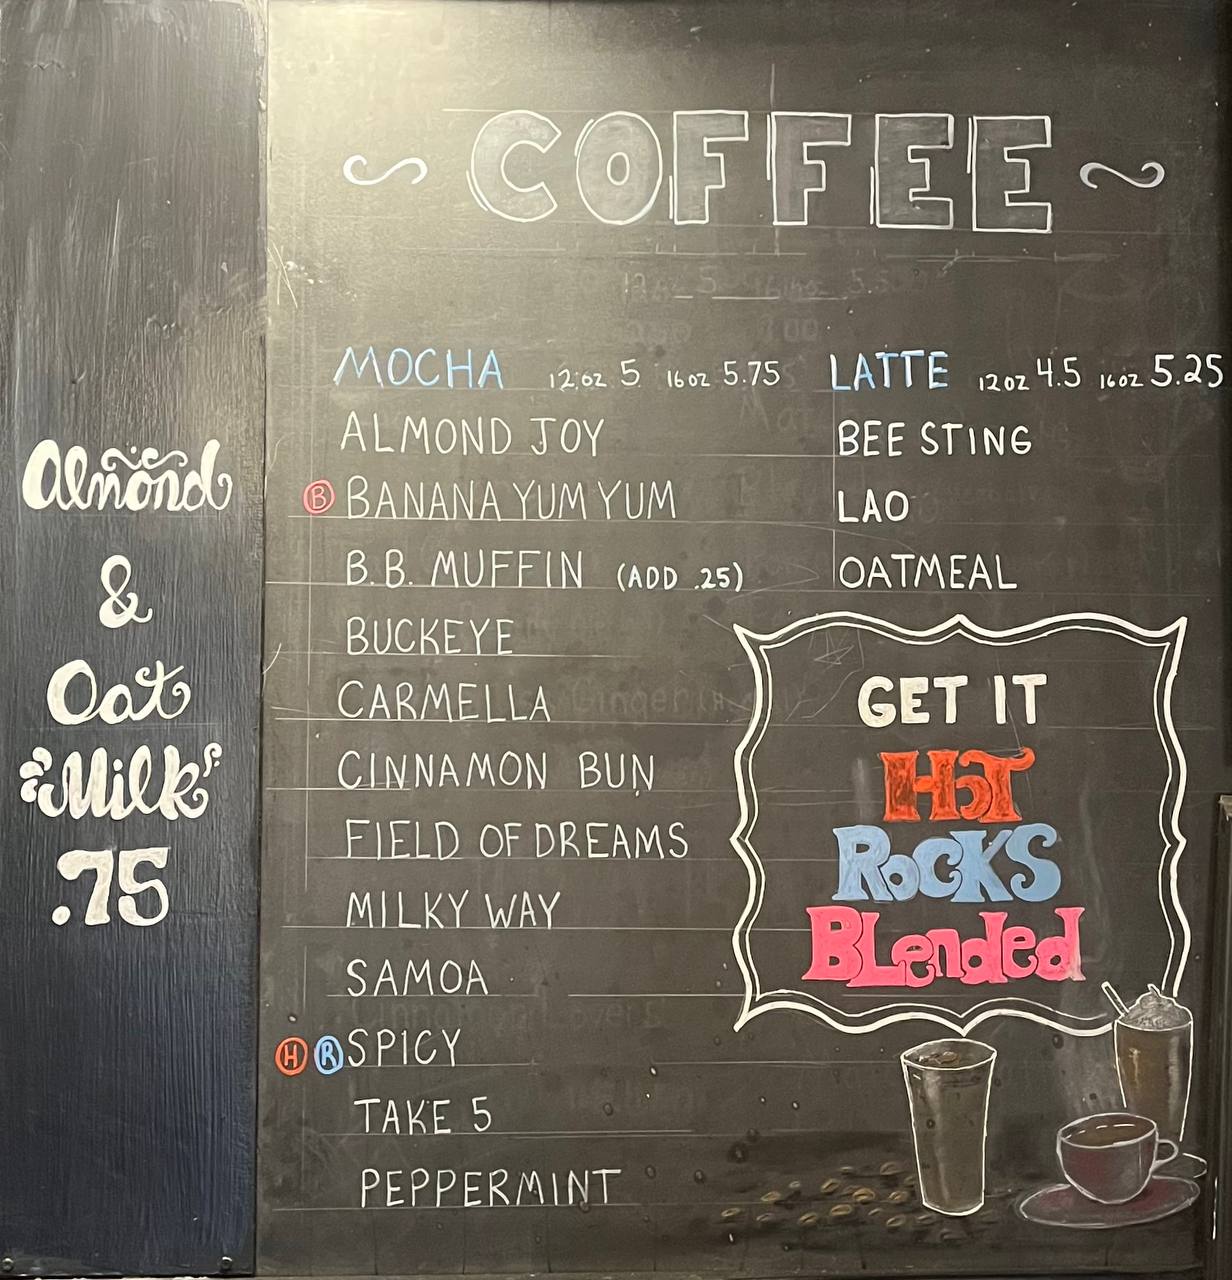 COFFEE
MOCHA 12oz 5 16oz 5.75
ALMOND JOY
B BANANA YUM YUM
B.B. MUFFIN (ADD .25)
BUCKEYE
CARMELLA
CINNAMON BUN
FIELD OF DREAMS
MILKY WAY
SAMOA
H R SPICY
TAKE 5
PEPPERMINT
LATTE 12oz 4.5 16oz 5.25
BEE STING
LAO
OATMEAL
GET IT
HOT
ROCKS
BLended
Almond
&
Oat
Milk
.75